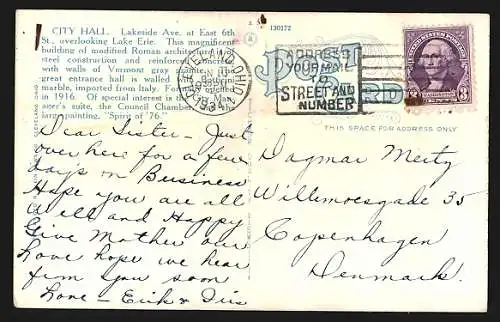 CITY HALL. Lakeside Ave. at East 6th
St., overlooking Lake Erie. This magnificent
building of modified Roman architecture
steel construction and reinforced concrete
with walls of Vermont gray
great entrance hall is walled
marble, imported from Italy.
in 1916. Of special interest is the
suite, the Council Chamber
large painting, "Spirit of '76."
130172
POST CARD
CLEVELAND, OHIO
ADDRESS
YOUR MAIL
TO
STREET AND
NUMBER
3
THIS SPACE FOR ADDRESS ONLY
Dear Sister - Just
over here for a few
days on Business
Hope you are all
Well and Happy
Give Mother our
Love hope we hear
from you soon
Love - Erik & Iris
Dagmar Meitz
Willemoesgade 35
Copenhagen
Denmark.